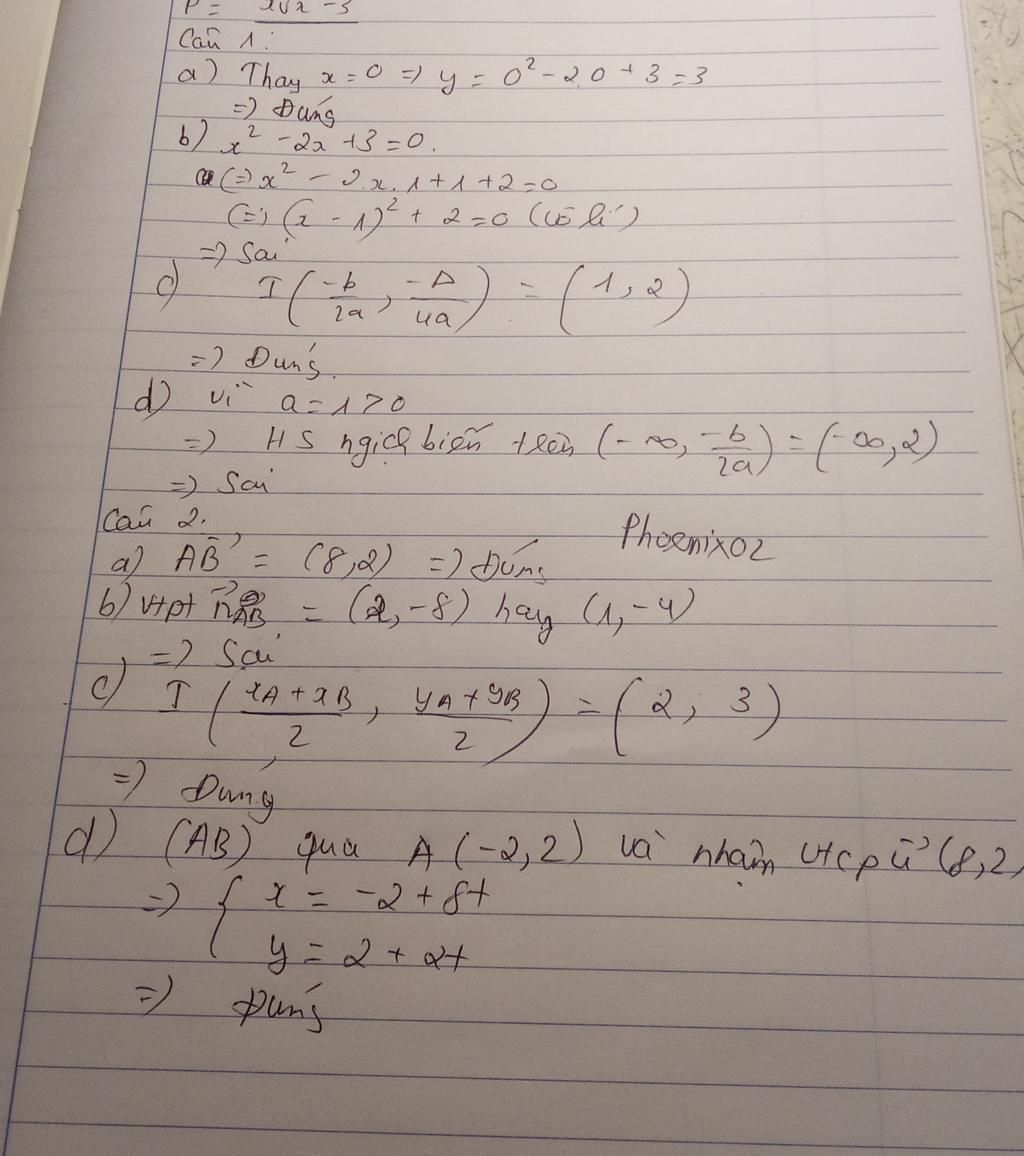 P = x√x - 3
Câu 1:
a) Thay x = 0 => y = 0² - 2.0 + 3 = 3
=> Đúng
b) x² - 2x + 3 = 0.
(=) x² - 2.x.1 + 1 + 2 = 0
(=) (x - 1)² + 2 = 0 (vô lí)
=> Sai
c) I (-b/2a, -Δ/4a) = (1, 2)
=> Đúng.
d) vì a = 1 > 0
=> HS ngịch biến trên (-∞, -b/2a) = (-∞, 2)
=> Sai
Câu 2.
Phoenix02
a) AB→ = (8,2) => Đúng
b) vtpt n→AB = (2, -8) hay (1, -4)
=> Sai
c) I (xA + xB/2, yA + yB/2) = (2; 3)
=> Đúng
d) (AB) qua A (-2,2) và nhậm vtcp u→ (8,2
=> { x = -2 + 8t
y = 2 + 2t
=> Đúng